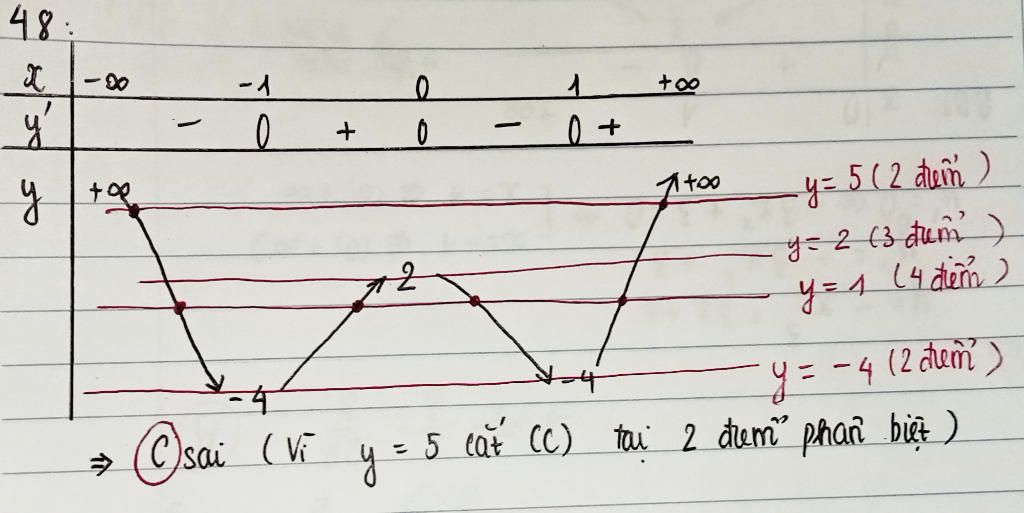 48:
x -∞ -1 0 1 +∞
y' - 0 + 0 - 0 +
y +∞ +∞ y = 5 (2 điểm)
2 y = 2 (3 điểm)
y = 1 (4 điểm)
-4 -4 y = -4 (2 điểm)
⇒ C sai (Vì y = 5 cắt (C) tại 2 điểm phân biệt)